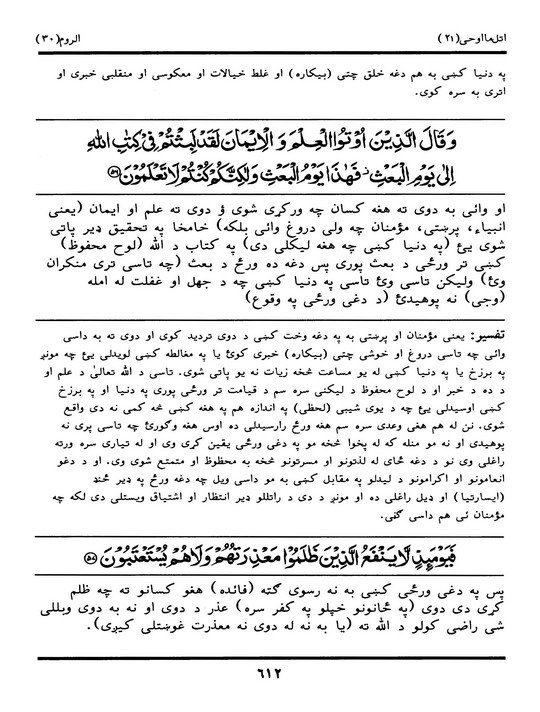 اتل‌مااوحی(۲۱)
الروم(۳۰)
په دنیا کښی به هم دغه خلق چتی (بیکاره) او غلط خیالات او معکوسی او منقلبی خبری او
اتری به سره کوی.
وَقَالَ الَّذِیْنَ اُوْتُوا الْعِلْمَ وَ الْاِیْمَانَ لَقَدْ لَبِثْتُمْ فِیْ كِتٰبِ اللّٰهِ
اِلٰی یَوْمِ الْبَعْثِ ۫ فَهٰذَا یَوْمُ الْبَعْثِ وَلٰكِنَّكُمْ كُنْتُمْ لَا تَعْلَمُوْنَ
او وائی به دوی ته هغه کسان چه ورکړی شوی ؤ دوی ته علم او ایمان (یعنی
انبیاء، پرښتی، مؤمنان چه ولی دروغ وائی بلکه) خامخا په تحقیق ډیر پاتی
شوی یئ (په دنیا کښی چه هغه لیکلی دی) په کتاب د الله (لوح محفوظ)
کښی تر ورځی د بعث پوری پس دغه ده ورځ د بعث (چه تاسی تری منکران
وئ) ولیکن تاسی وئ تاسی په دنیا کښی چه د جهل او غفلت له امله
(وجی) نه پوهیدئ (د دغی ورځی په وقوع)
تفسیر: یعنی مؤمنان او پرښتی به په دغه وخت کښی د دوی تردید کوی او دوی ته به داسی
وائی چه تاسی دروغ او خوشی چتی (بیکاره) خبری کوئ یا په مغالطه کښی لویدلی یئ چه مونږ
په برزخ یا په دنیا کښی له یو ساعت څخه زیات نه یو پاتی شوی. تاسی د الله تعالیٰ د علم او
د ده د خبر او د لوح محفوظ د لیکنی سره سم د قیامت تر ورځی پوری په دنیا او په برزخ
کښی اوسیدلی یئ چه د یوی شیبی (لحظی) په اندازه هم په هغه کښی څه کمی نه دی واقع
شوی. نن له هم هغی وعدی سره سم هغه ورځ رارسیدلی ده اوس هغه وګورئ چه تاسی پری نه
پوهیدی او نه مو منله که له پخوا څخه مو په دغی ورځی یقین کړی وی او له تیاری سره ورته
راغلی وی نو د دغه ځای له لذتونو او مسرتونو څخه به محظوظ او متمتع شوی وی. او د دغو
انعامونو او اکرامونو د لیدلو په مقابل کښی به مو داسی ویل چه دغه ورځ په ډیر ځنډ
(ایسارتیا) او ډیل راغلی ده او مونږ د دی د راتللو ډیر انتظار او اشتیاق ویستلی دی لکه چه
مؤمنان ئی هم داسی ګڼی.
فَیَوْمَىِٕذٍ لَّا یَنْفَعُ الَّذِیْنَ ظَلَمُوْا مَعْذِرَتُهُمْ وَلَا هُمْ یُسْتَعْتَبُوْنَ
پس په دغی ورځی کښی به نه رسوی ګټه (فائده) هغو کسانو ته چه ظلم
کړی دی دوی (په ځانونو خپلو په کفر سره) عذر د دوی او نه به دوی وبللی
شی راضی کولو د الله ته (یا به نه له دوی نه معذرت غوښتلی کیږی).
٦١٢